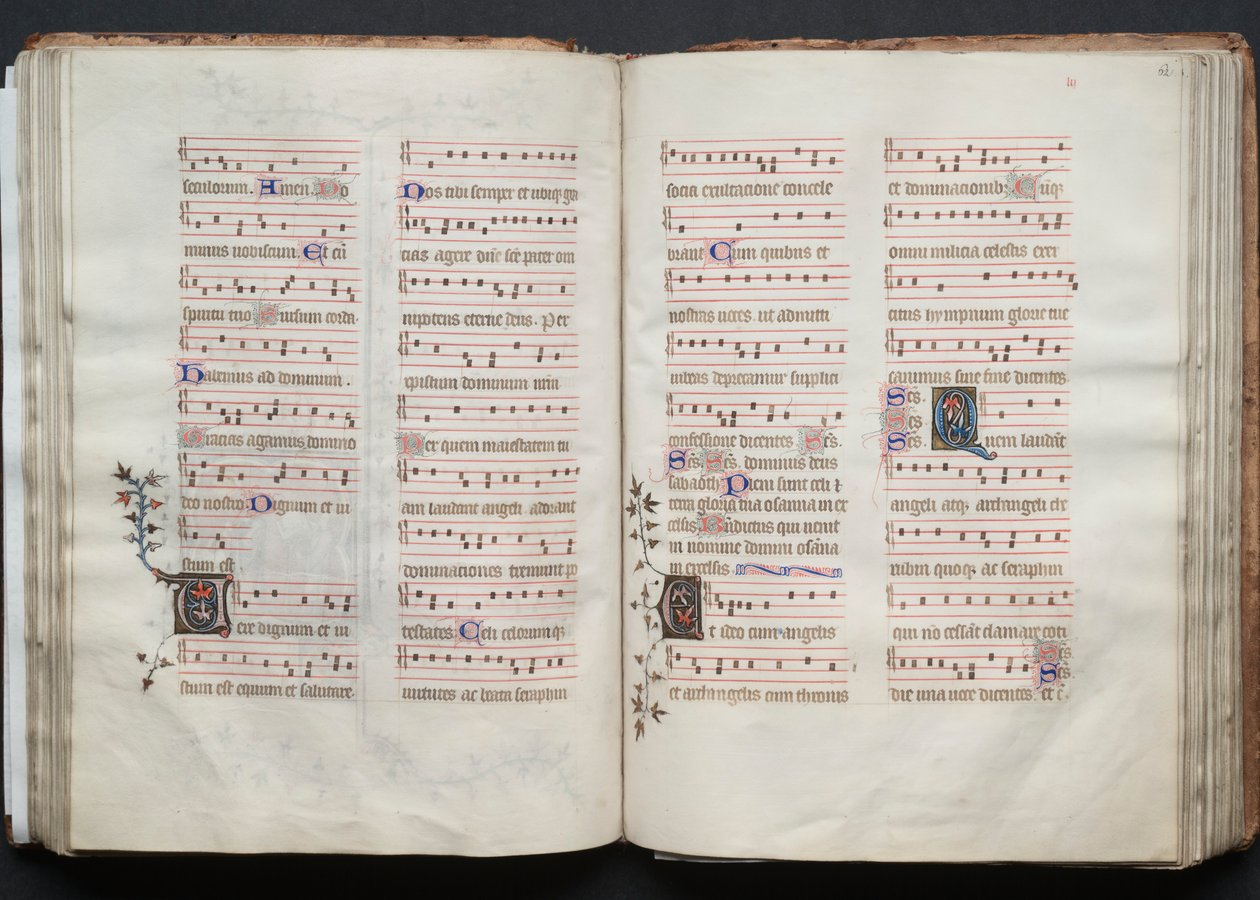 seculorum. Amen. Do
minus uobiscum. Et cū
spiritu tuo Sursum corda.
Habemus ad dominum.
Gracias agamus domino
deo nostro Dignum et iu
stum est
Uere dignum et iu
stum est equum et salutare.
Nos tibi semper et ubiqꝫ gra
cias agere dn̄e sc̄e pater om
nipotens eterne deus. Per
xp̄istum dominum nr̄m
Per quem maiestatem tu
am laudant angeli adorant
dominaciones tremunt po
testates Celi celorumqꝫ
uirtutes ac beata seraphin
62
socia exultacione concele
brant Cum quibus et
nostras uoces. ut admitti
iubeas deprecamur supplici
confessione dicentes Sc̄s.
Sc̄s. Sc̄s. dominus deus
sabaoth Pleni sunt celi ⁊
terra gloria tua osanna in ex
celsis Bn̄dictus qui uenit
in nomine domini osāna
in excelsis.
Et ideo cum angelis
et archangelis cum thronis
et dominacionibꝫ Cūqꝫ
omni milicia celestis exer
citus hympnum glorie tue
canimus sine fine dicentes.
Sc̄s.
Sc̄s
Sc̄s. Quem laudāt
angeli atqꝫ archangeli che
rubin quoqꝫ ac seraphin
qui nō cessāt clamare coti
die una uoce dicentes. Sc̄s
Sc̄s. et c̄.